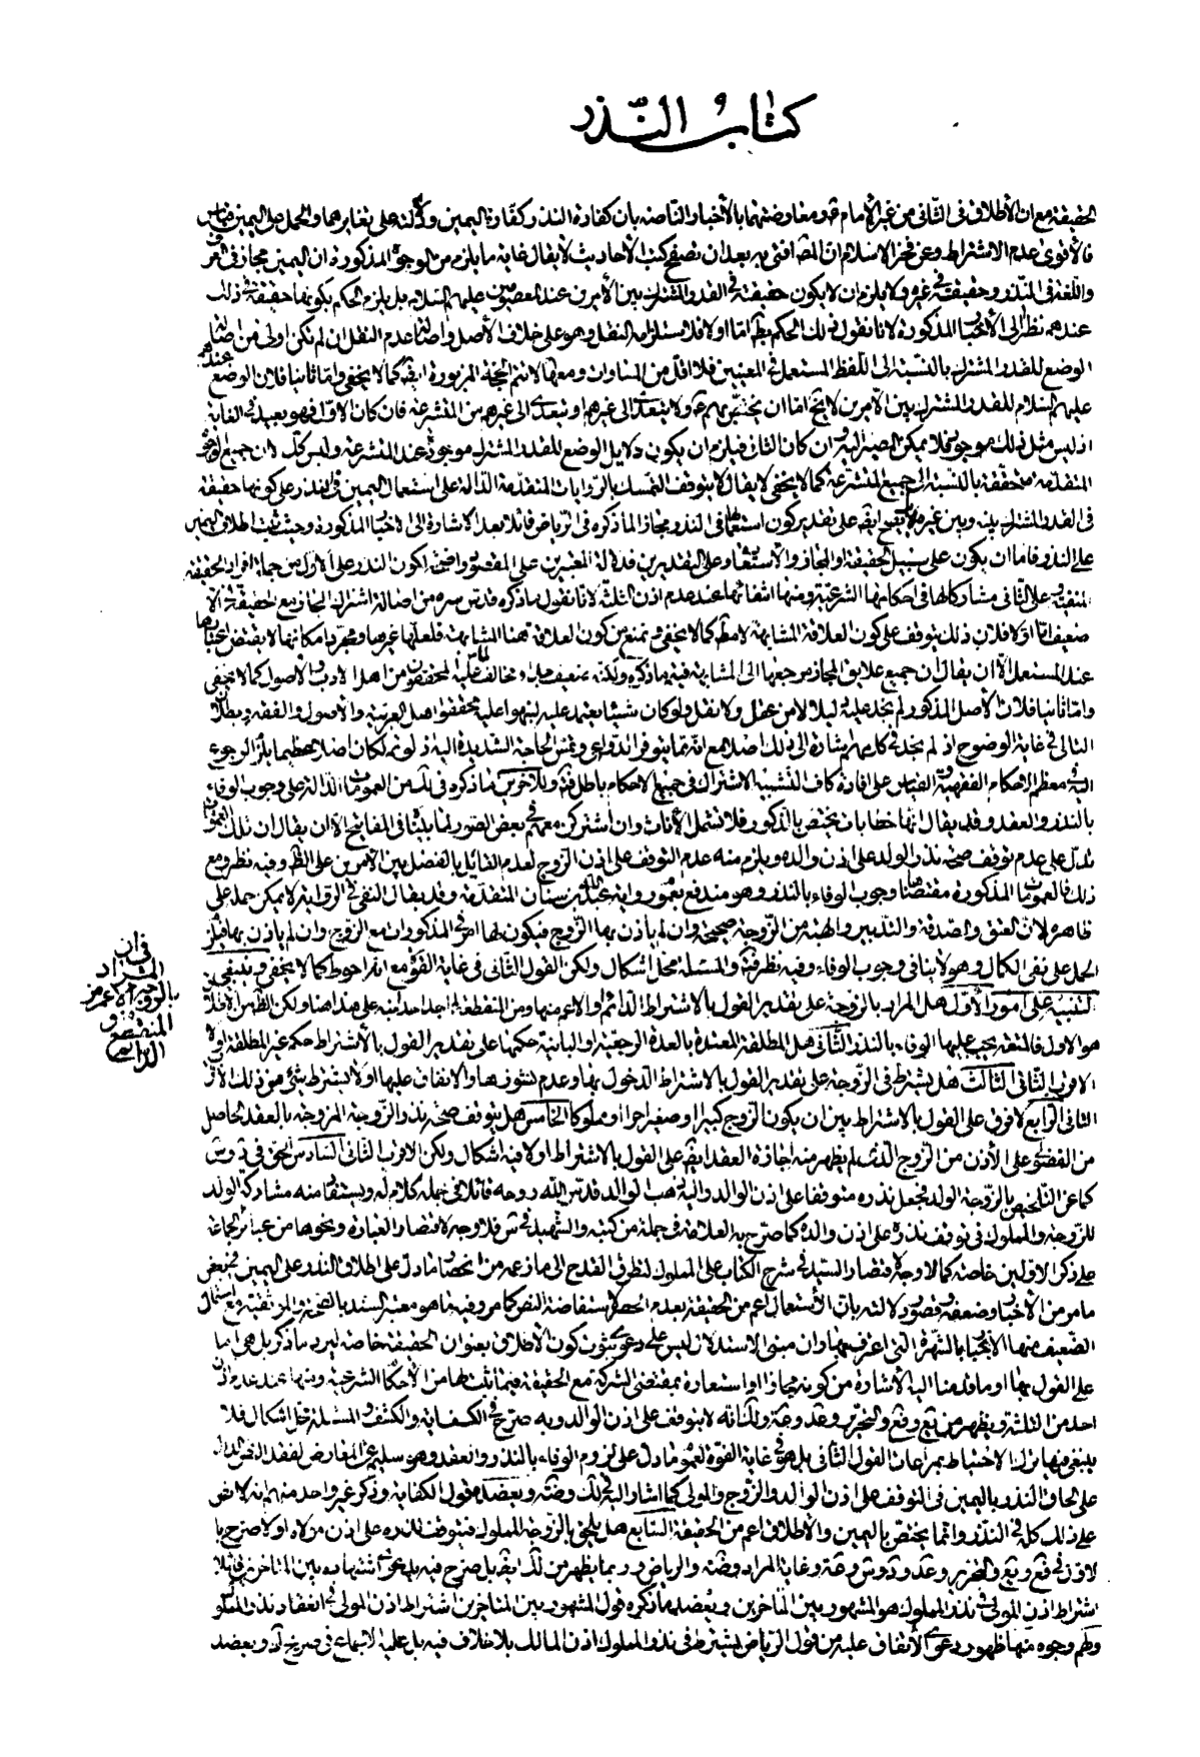 كتاب النذر
الحقيقة مع ان الأطلاق فى الثانى من غير الأمام ومعاوضتهما بالأخبار الناصة بان كفارة النذر كفارة اليمين دالة على تغايرهما والحمل على اليمين
فالأقوى عدم الاشتراط وعن فخر الاسلام ان المص افتى به بعد ان تصفح كتب الأحاديث لا يقال غاية ما يلزم من الوجوه المذكورة ان اليمين مجاز فى العرف
واللغة فى النذر وحقيقة فى غيره ولا يلزم ان لا يكون حقيقة فى القدر المشترك بين الأمرين عند المعصومين عليهم السلام بل يلزم الحكم بكونها حقيقة فى ذلك
عندهم نظرا الى الأخبار المذكورة لانا نقول ذلك الحكم بط اما اولا فلاستلزامه النقل وهو على خلاف الأصل واصالة عدم النقل ان لم تكن اولى من اصالة
الوضع للقدر المشترك بالنسبة الى اللفظ المستعمل فى المعنيين فلا اقل من المساواة ومعها لا تتم الحجة المزبورة ايضا كما لا يخفى واما ثانيا فلان الوضع عندهم
عليهم السلام للقدر المشترك بين الأمرين لا يخ اما ان يختص بهم ولا يتعدى الى غيرهم او يتعدى الى غيرهم من المتشرعة فان كان الاول فهو بعيد فى الغاية
اذ ليس مثل ذلك موجودا فلا يمكن المصير اليه وان كان الثانى فيلزم ان يكون دلايل الوضع للقدر المشترك موجودة عند المتشرعة وليس كك لان جميع الوجوه
المتقدمة متحققة بالنسبة الى جميع المتشرعة كما لا يخفى لا يقال لا يتوقف التمسك بالروايات المتقدمة الدالة على استعمال اليمين فى النذر على كونها حقيقة
فى القدر المشترك بينه وبين غيره بل يصح ايضا على تقدير كون استعمالها فى النذر مجازا لما ذكره فى الرياض قائلا بعد الاشارة الى الاخبار المذكورة وحيث ثبت اطلاق اليمين
على النذر فاما ان يكون على سبيل الحقيقة او المجاز والاستعارة وعلى التقديرين فدلالة المعتبرين على المقصود واضحة لكون النذر على الاول من جملة افراد الحقيقة
المنفية وعلى الثانى مشاركا لها فى احكامها الشرعية ومنها انتفائها عند عدم اذن الثلثة لانا نقول ما ذكره قدس سره من اصالة اشتراك المجاز مع الحقيقة فى الاحكام
ضعيف اما اولا فلان ذلك يتوقف على كون العلاقة المشابهة لا مطلقا كما لا يخفى ونمنع من كون العلاقة هنا المشابهة فلعلها غيرها ومجرد امكانها لا يقتضى اعتبارها
عند المستعمل الا ان يقال ان جميع علايق المجاز مرجعها الى المشابهة ففيه ما ذكره ولكنه ضعيف جدا ومخالف لما عليه المحققون من اهل الادب والاصول كما لا يخفى
واما ثانيا فلان الأصل المذكور لم نجد عليه دليلا لا من عقل ولا نقل ولو كان شيئا يعتمد عليه لنبه عليه محققوا اهل العربية والأصول والفقه وبطلان
التالى فى غاية الوضوح اذ لم نجد فى كلامهم اشارة الى ذلك اصلا مع انه مما يتوفر الدواعى وتمس الحاجة الشديدة اليه اذ لو تم لكان اصلا عظيما يلزم الرجوع
اليه فى معظم الاحكام الفقهية والقياس على افادة كاف التشبيه الاشتراك فى جميع الاحكام باطل وللاخرين ما ذكره فى لك من العمومات الدالة على وجوب الوفاء
بالنذر والعقد وقد يقال انها خطابات تختص بالذكور فلا تشمل الأناث وان اشتركن معهم فى بعض الصور لما بيناه فى المفاتيح الا ان يقال ان تلك العمومات
تدل على عدم توقف صحة نذر الولد على اذن والده ويلزم منه عدم التوقف على اذن الزوج لعدم القائل بالفصل بين الأمرين على الظ وفيه نظر ومع
ذلك فالعمومات المذكورة مقتضاها وجوب الوفاء بالنذر وهو مندفع بعموم رواية عبد الله بن سنان المتقدمة وقد يقال النفى فى الرواية لا يمكن حمله على
ظاهره لان العتق والصدقة والتدبير والهبة من الزوجة صحيحة وان لم يأذن بها الزوج فيكون لها امر فى المذكورات مع الزوج وان لم يأذن بها
الحمل على نفى الكمال وهو لا ينافى وجوب الوفاء وفيه نظر والمسئلة محل اشكال ولكن القول الثانى فى غاية القوة مع انه احوط كما لا يخفى وينبغى
التنبيه على امور الأول هل المراد بالزوجة على تقدير القول بالاشتراط الدائم او الاعم منها ومن المنقطعة لم اجد احدا نبه على هذا هنا ولكن الظاهر
هو الاول فالمتعة يجب عليها الوفاء بالنذر الثانى هل المطلقة المعتدة بالعدة الرجعية او البائنة حكمها على تقدير القول بالأشتراط حكم غير المطلقة اولا
الاقرب الثانى الثالث هل يشترط فى الزوجة على تقدير القول بالاشتراط الدخول بها وعدم نشوزها والانفاق عليها اولا يشترط شئ من ذلك الأقرب
الثانى الرابع لا فرق على القول بالاشتراط بين ان يكون الزوج كبيرا او صغيرا حرا او مملوكا الخامس هل يتوقف صحة نذر الزوجة المزوجة بالعقد الحاصل
من الفضولى على الأذن من الزوج الذى لم يظهر منه اجازة العقد ايضا على القول بالاشتراط اولا فيه اشكال ولكن الاقرب الثانى السادس الحق فى
كما عن التلخيص بالزوجة الولد فجعل نذره متوقفا على اذن الوالد واليه ذهب الوالد قدس الله روحه قائلا فى جملة كلام له ويستفاد منه مشاركة الولد
للزوجة والمملوك فى توقف نذره على اذن والده كما صرح به العلامة فى جملة من كتبه والشهيد فى س فلا وجه لاقتصار العبارة ونحوها من عبائر الجماعة
على ذكر الاولين خاصة كما لا وجه لاقتصار السيد فى شرح الكتاب على المملوك لتطرق القدح الى ما زعمه من اختصاص ما دل على اطلاق النذر على اليمين
ما مر من الأخبار وضعفه وقصور دلالته بان الأستعمال اعم من الحقيقة بعدم الحصر لاستفاضة النصوص كما مر وفيها ما هو معتبر السند بالصحة والموثقية مع احتمال
الضعيف منها الانجبار بالشهرة التى اعترف بها وان مبنى الاستدلال ليس على دعوى ثبوت كون الأطلاق بعنوان الحقيقة خاصة ليرد ما ذكر بل هى اما
على القول بها او ما قدمنا اليه الأشارة من كونه مجازا او استعارة بمقتضى الشركة مع الحقيقة فيما ثبت لها من الأحكام الشرعية ومنها عند عدم اذن
احد من الثلثة ويظهر من يع وقع والتحرير وعد وضة ولك انه لا يتوقف على اذن الوالد وبه صرح فى الكفاية والكشف والمسئلة محل اشكال فلا
ينبغى فيها ترك الاحتياط بمراعات القول الثانى بل هو فى غاية القوة لعموم ما دل على لزوم الوفاء بالنذر والعقد وهو سليم عن المعارض لفقد النص الدال
على الحاق النذر باليمين فى التوقف على اذن الوالد والزوج والمولى كما اشار اليه فى لك وضة ويعضده قول الكفاية وذكر غير واحد منهم انه لا نص
على ذلك كله فى النذر وانما يختص باليمين والأطلاق اعم من الحقيقة السابع هل يلحق بالزوجة المملوك فيتوقف نذره على اذن مولاه اولا صرح بالاول
فى قع ويع والتحرير وعد و س وضة وغاية المراد وضه والرياض وربما يظهر من لك ايضا بل صرح فيه بدعوى اشتهاره بين المتأخرين قائلا
اشتراط اذن المولى فى نذر المملوك هو المشهور بين المتأخرين ويعضد ما ذكره قول المشهور بين المتأخرين اشتراط اذن المولى فى انعقاد نذر المملوك
ولهم وجوه منها ظهور دعوى الأتفاق عليه من قول الرياض يشترط فى نذر المملوك اذن المالك بلا خلاف فيه بل عليه الاجماع فى صريح لك ويعضد
فى ان
المراد
بالزوجة الاعم من
المنقطعة و
الدائمى